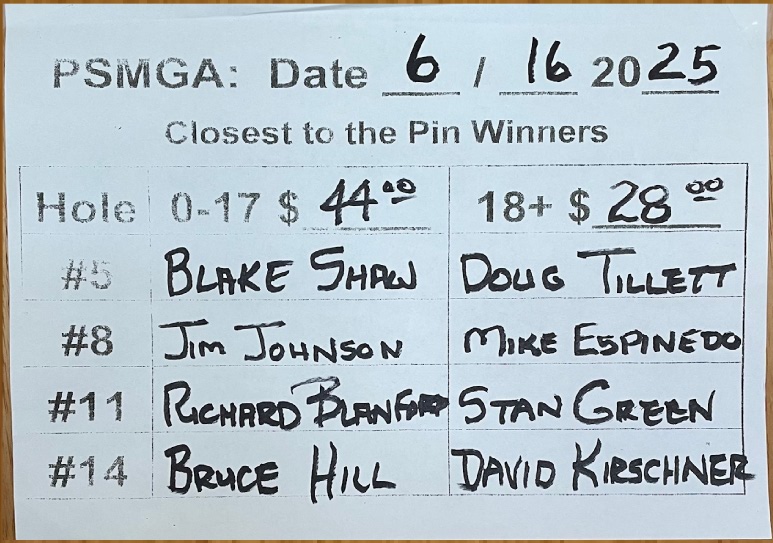 PSMGA: Date 6 / 16 2025
Closest to the Pin Winners
Hole 0-17 $ 44.00 18+ $ 28.00
#5 BLAKE SHAW DOUG TILLETT
#8 JIM JOHNSON MIKE ESPINEDO
#11 RICHARD BLANFORD STAN GREEN
#14 BRUCE HILL DAVID KIRSCHNER